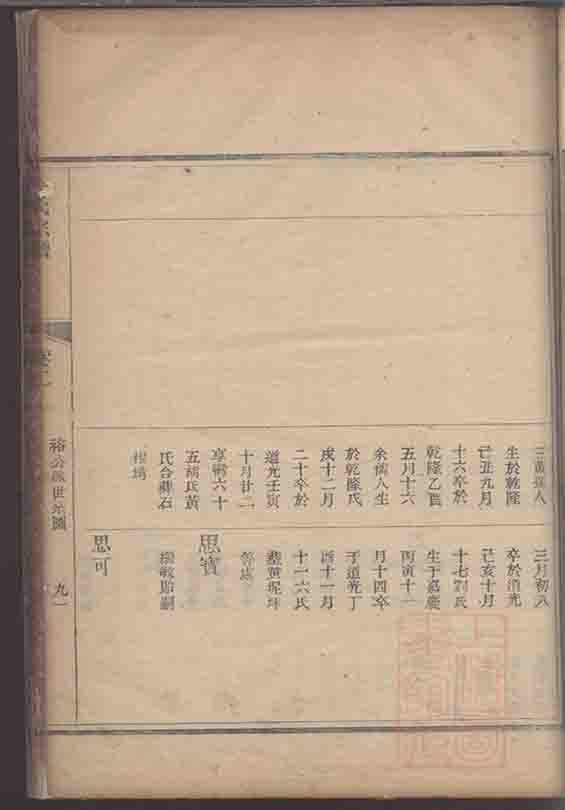 三黃孺人
生於乾隆
己丑九月
十六卒於
乾隆乙酉
五月十六
余孺人生
於乾隆戊
戌十二月
二十卒於
道光壬寅
十月廿二
享壽六十
五胡氏黃
氏合葬石
三月初八
卒於道光
己亥十月
十七劉氏
生于嘉慶
丙寅十一
月十四卒
于道光丁
酉十一月
十一六氏
葬黃泥坪
等處
思寶
嗣
思可
裕公派世系圖
九一